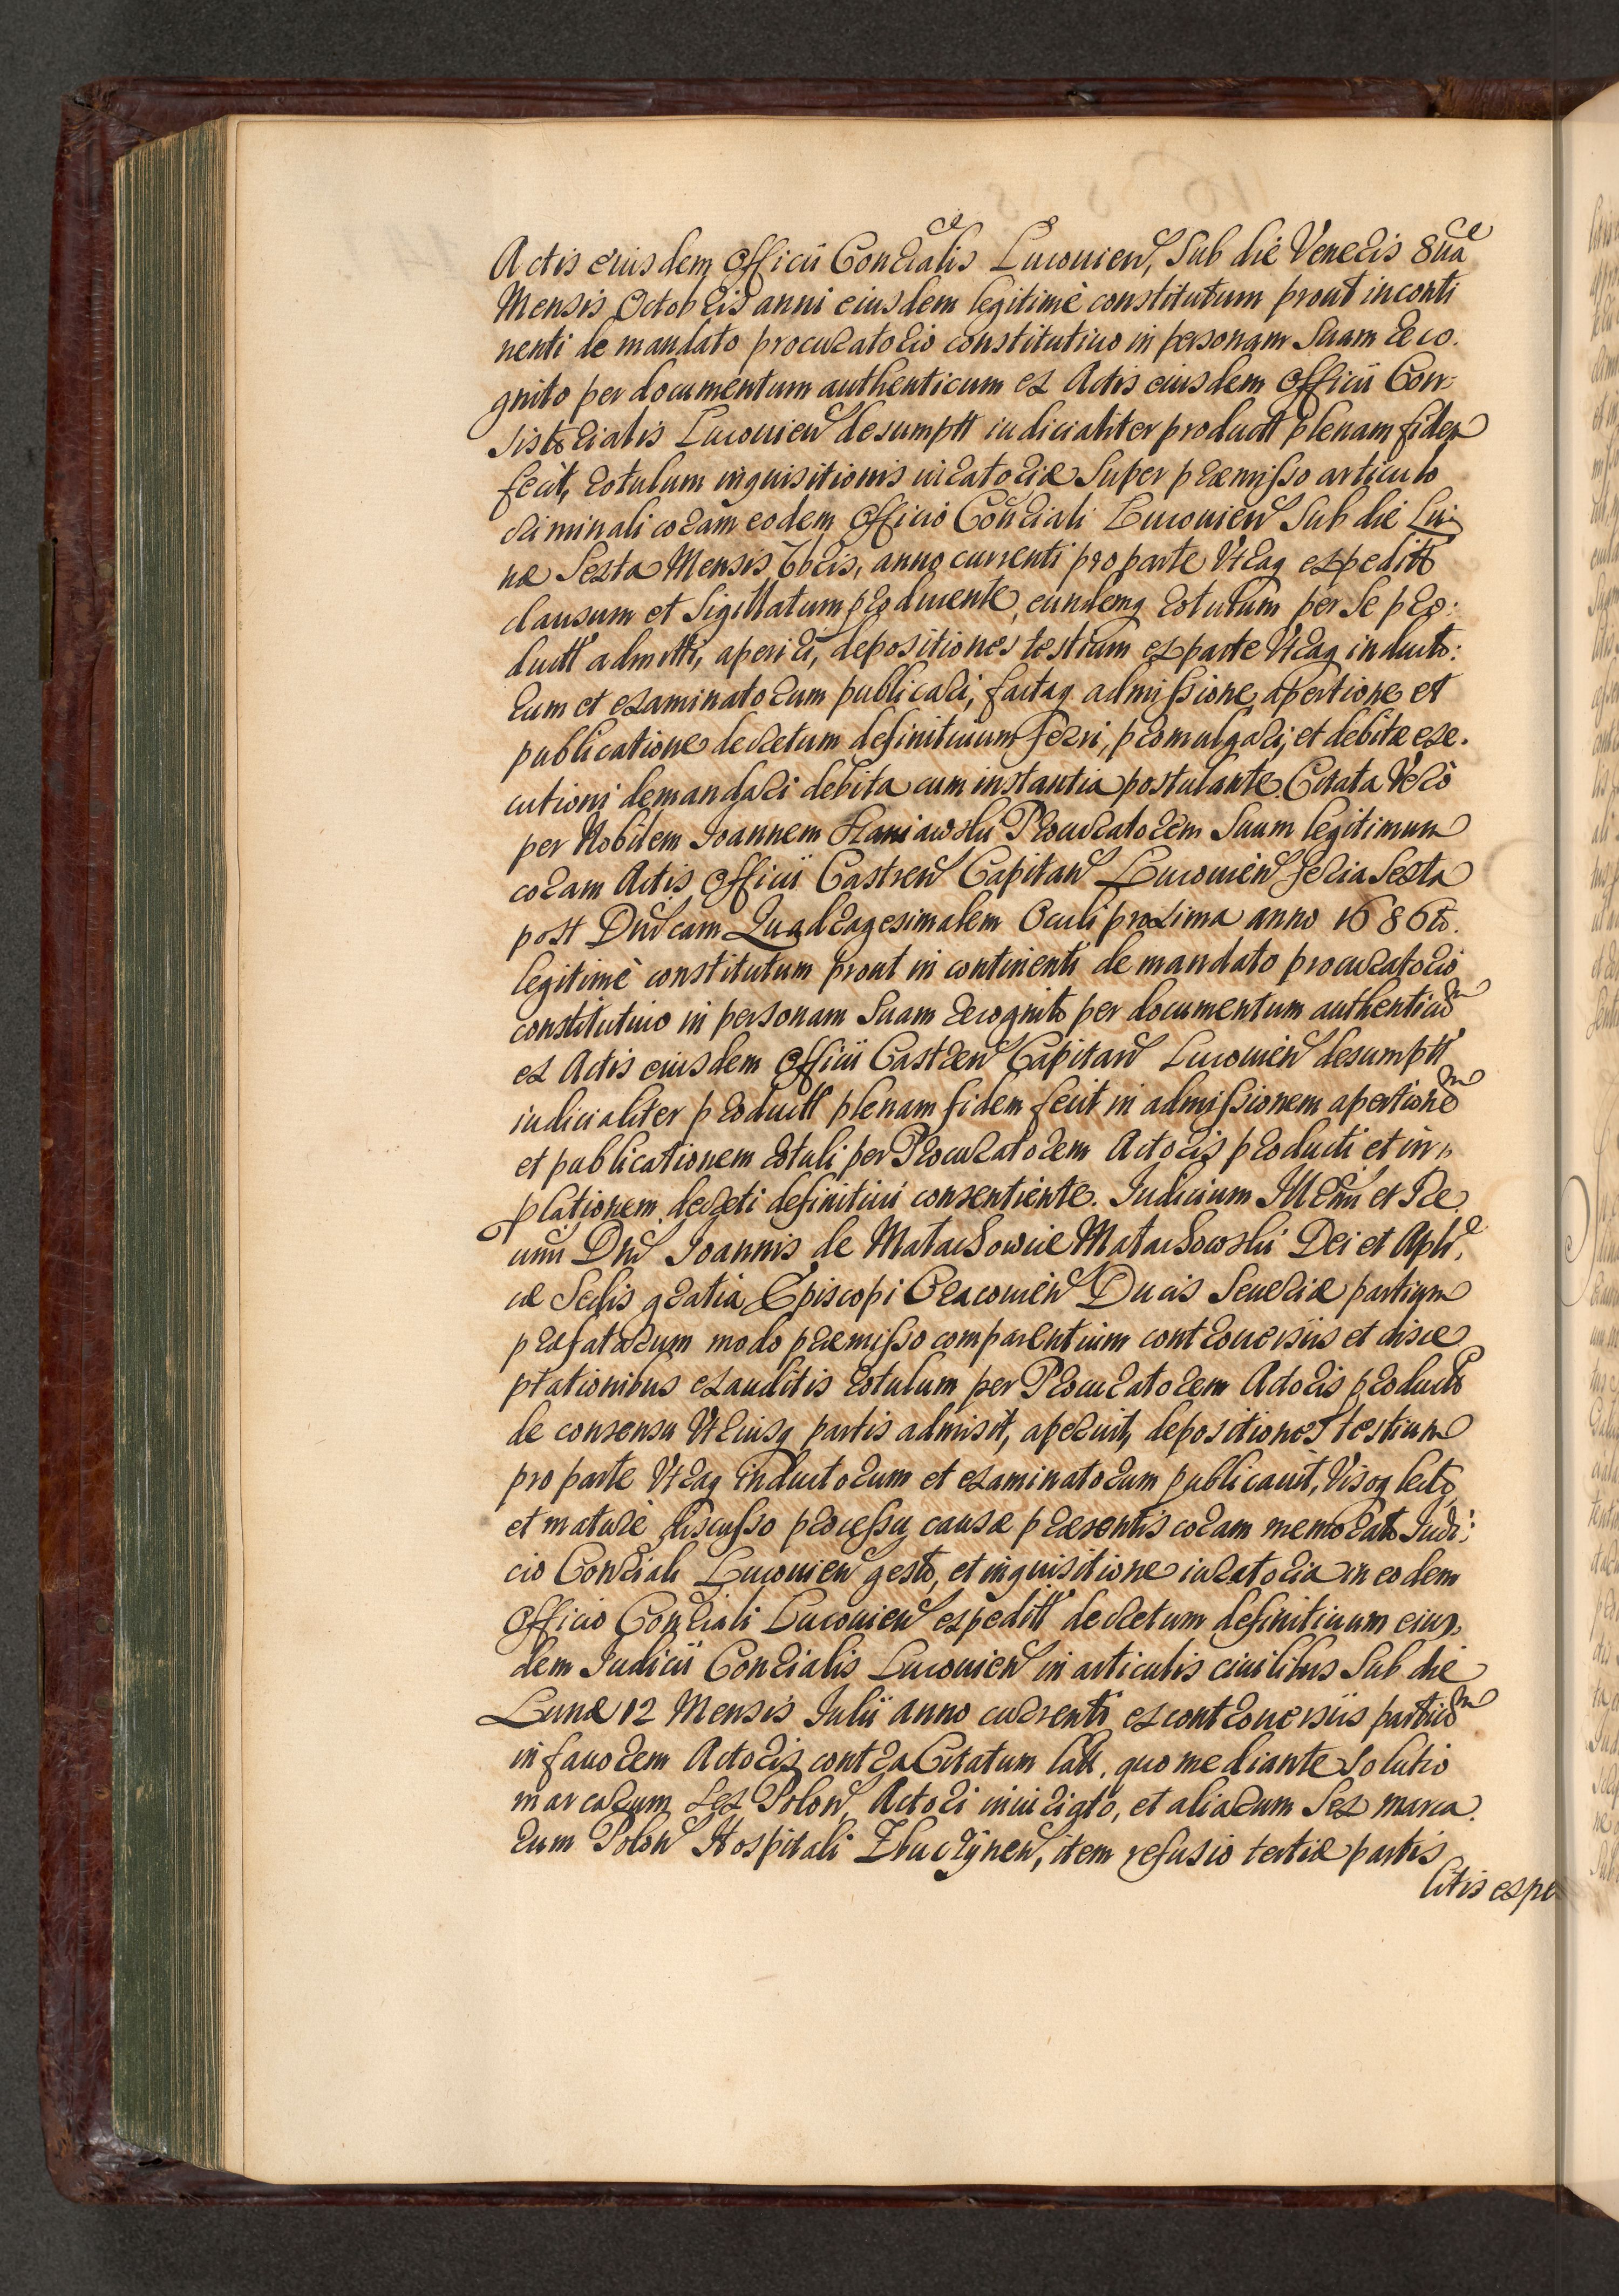 Actis eiusdem Officii Conrialis Lucouien, sub die Veneris 8ua
Mensis Octobris anni eiusdem legitimè constitutum prout inconti
nenti de mandato procuratorio constitutiuo in personam suam reco.
gnito per documentum authenticum ex Actis eiusdem Officii Con-
sistorialis Lucouien desumptt iudicialiter productt plenam fidem
fecit, rotulum inquisitionis iuratoriæ super præmisso articulo
criminali coram eodem Officio Conriali Lucouien sub die Lu-
næ Sexta Mensis 7bris, anno currenti pro parte Vtraq expeditt
clausum et sigillatum producente, eundemq rotulum per se pro:
ductt admitti, aperiri, depositiones testium ex parte Vtraq inducto:
rum et examinatorum publicari, factaq admissione, apertione et
publicatione decretum definitiuum ferri, promulgari, et debitæ exe.
cutioni demandari debita cum instantia postulante. Citata Verò
per Nobilem Ioannem Staniawski Procuratorem suum legitimum
coram Actis Officii Castren Capitan Lucouien feria Sexta
post Dnicam Quadragesimalem Oculi proxima anno 1686to.
legitimè constitutum prout in continenti de mandato procuratorio
constitutiuo in personam suam recognito per documentum authenticum
ex Actis eiusdem Officii Castren Capitan Lucouien desumptt
iudicialiter productt plenam fidem fecit in admissionem apertionem
et publicationem rotuli per Procuratorem Actoris producti et in
plationem decreti definitiui consentiente. Iudicium Illmi et Re
umi Dni Ioannis de Małachowice Małachowski Dei et Apli,
cæ Sedis gratia Episcopi Cracouien Ducis Seueriæ partium
præfatarum modo præmisso comparentium controuersiis et disce
ptationibus exauditis rotulum per Procuratorem Actoris productt
de consensu Vtriusq partis admisit, aperuit, depositiones testium
pro parte Vtraq inductorum et examinatorum publicauit, Visoq lecto
et maturè discusso processu causæ præsentis coram memorato Iudi:
cio Conriali Lucouien gesto, et inquisitione iuratoria in eodem
Officio Conriali Lucouien expeditt decretum definitiuum eius,
dem Iudicii Conrialis Lucouien in articulis ciuilibus sub die
Lunæ 12 Mensis Iulii anno currenti ex controuersiis partium
in fauorem Actoris contra Citatum latt, quo mediante solutio
marcarum sex Polon, Actori iniuriato, et aliarum sex marca.
rum Polon Hospitali Zbuczÿnen, item refusio tertiæ partis
litis expe